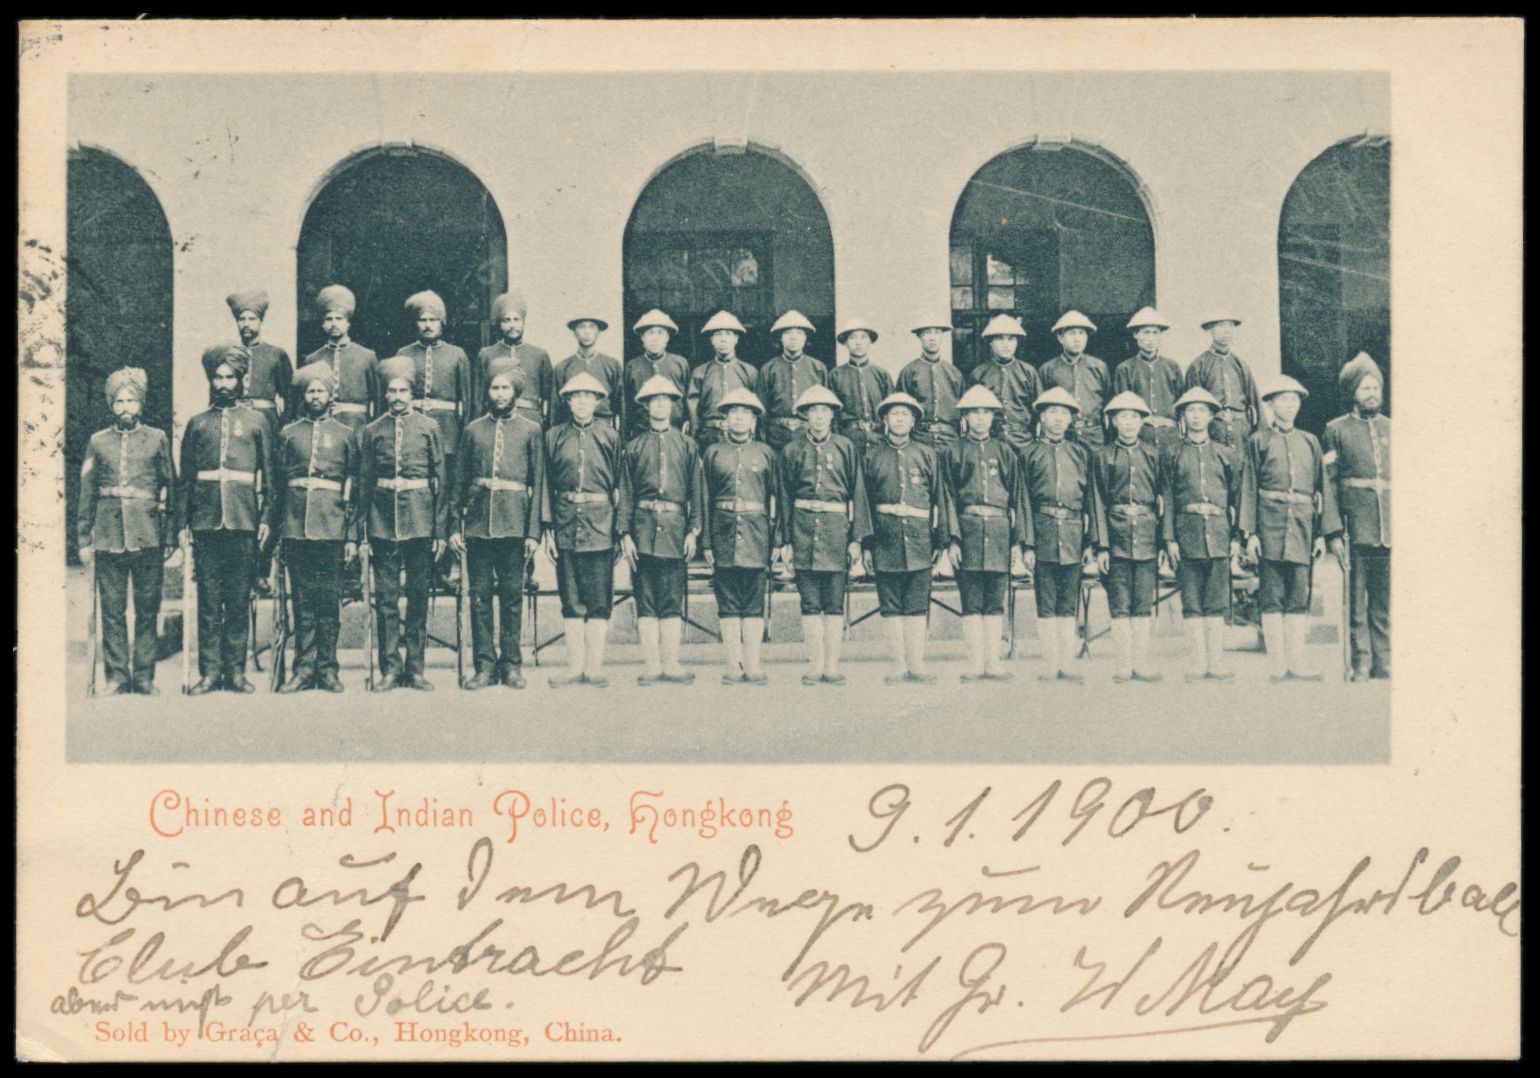 Chinese and Indian Police, Hongkong
9.1.1900.
Bin auf dem Wege zum Neujahrsball
Club Eintracht
aber nicht per Police.
Mit Gr. W May
Sold by Graça & Co., Hongkong, China.